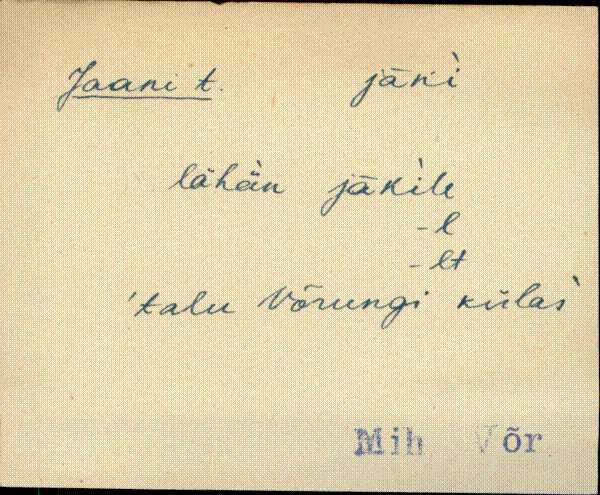 Jaani t. jāni
lähän jākile
-l
-lt
'talu Võrungi külas
Mih Võr